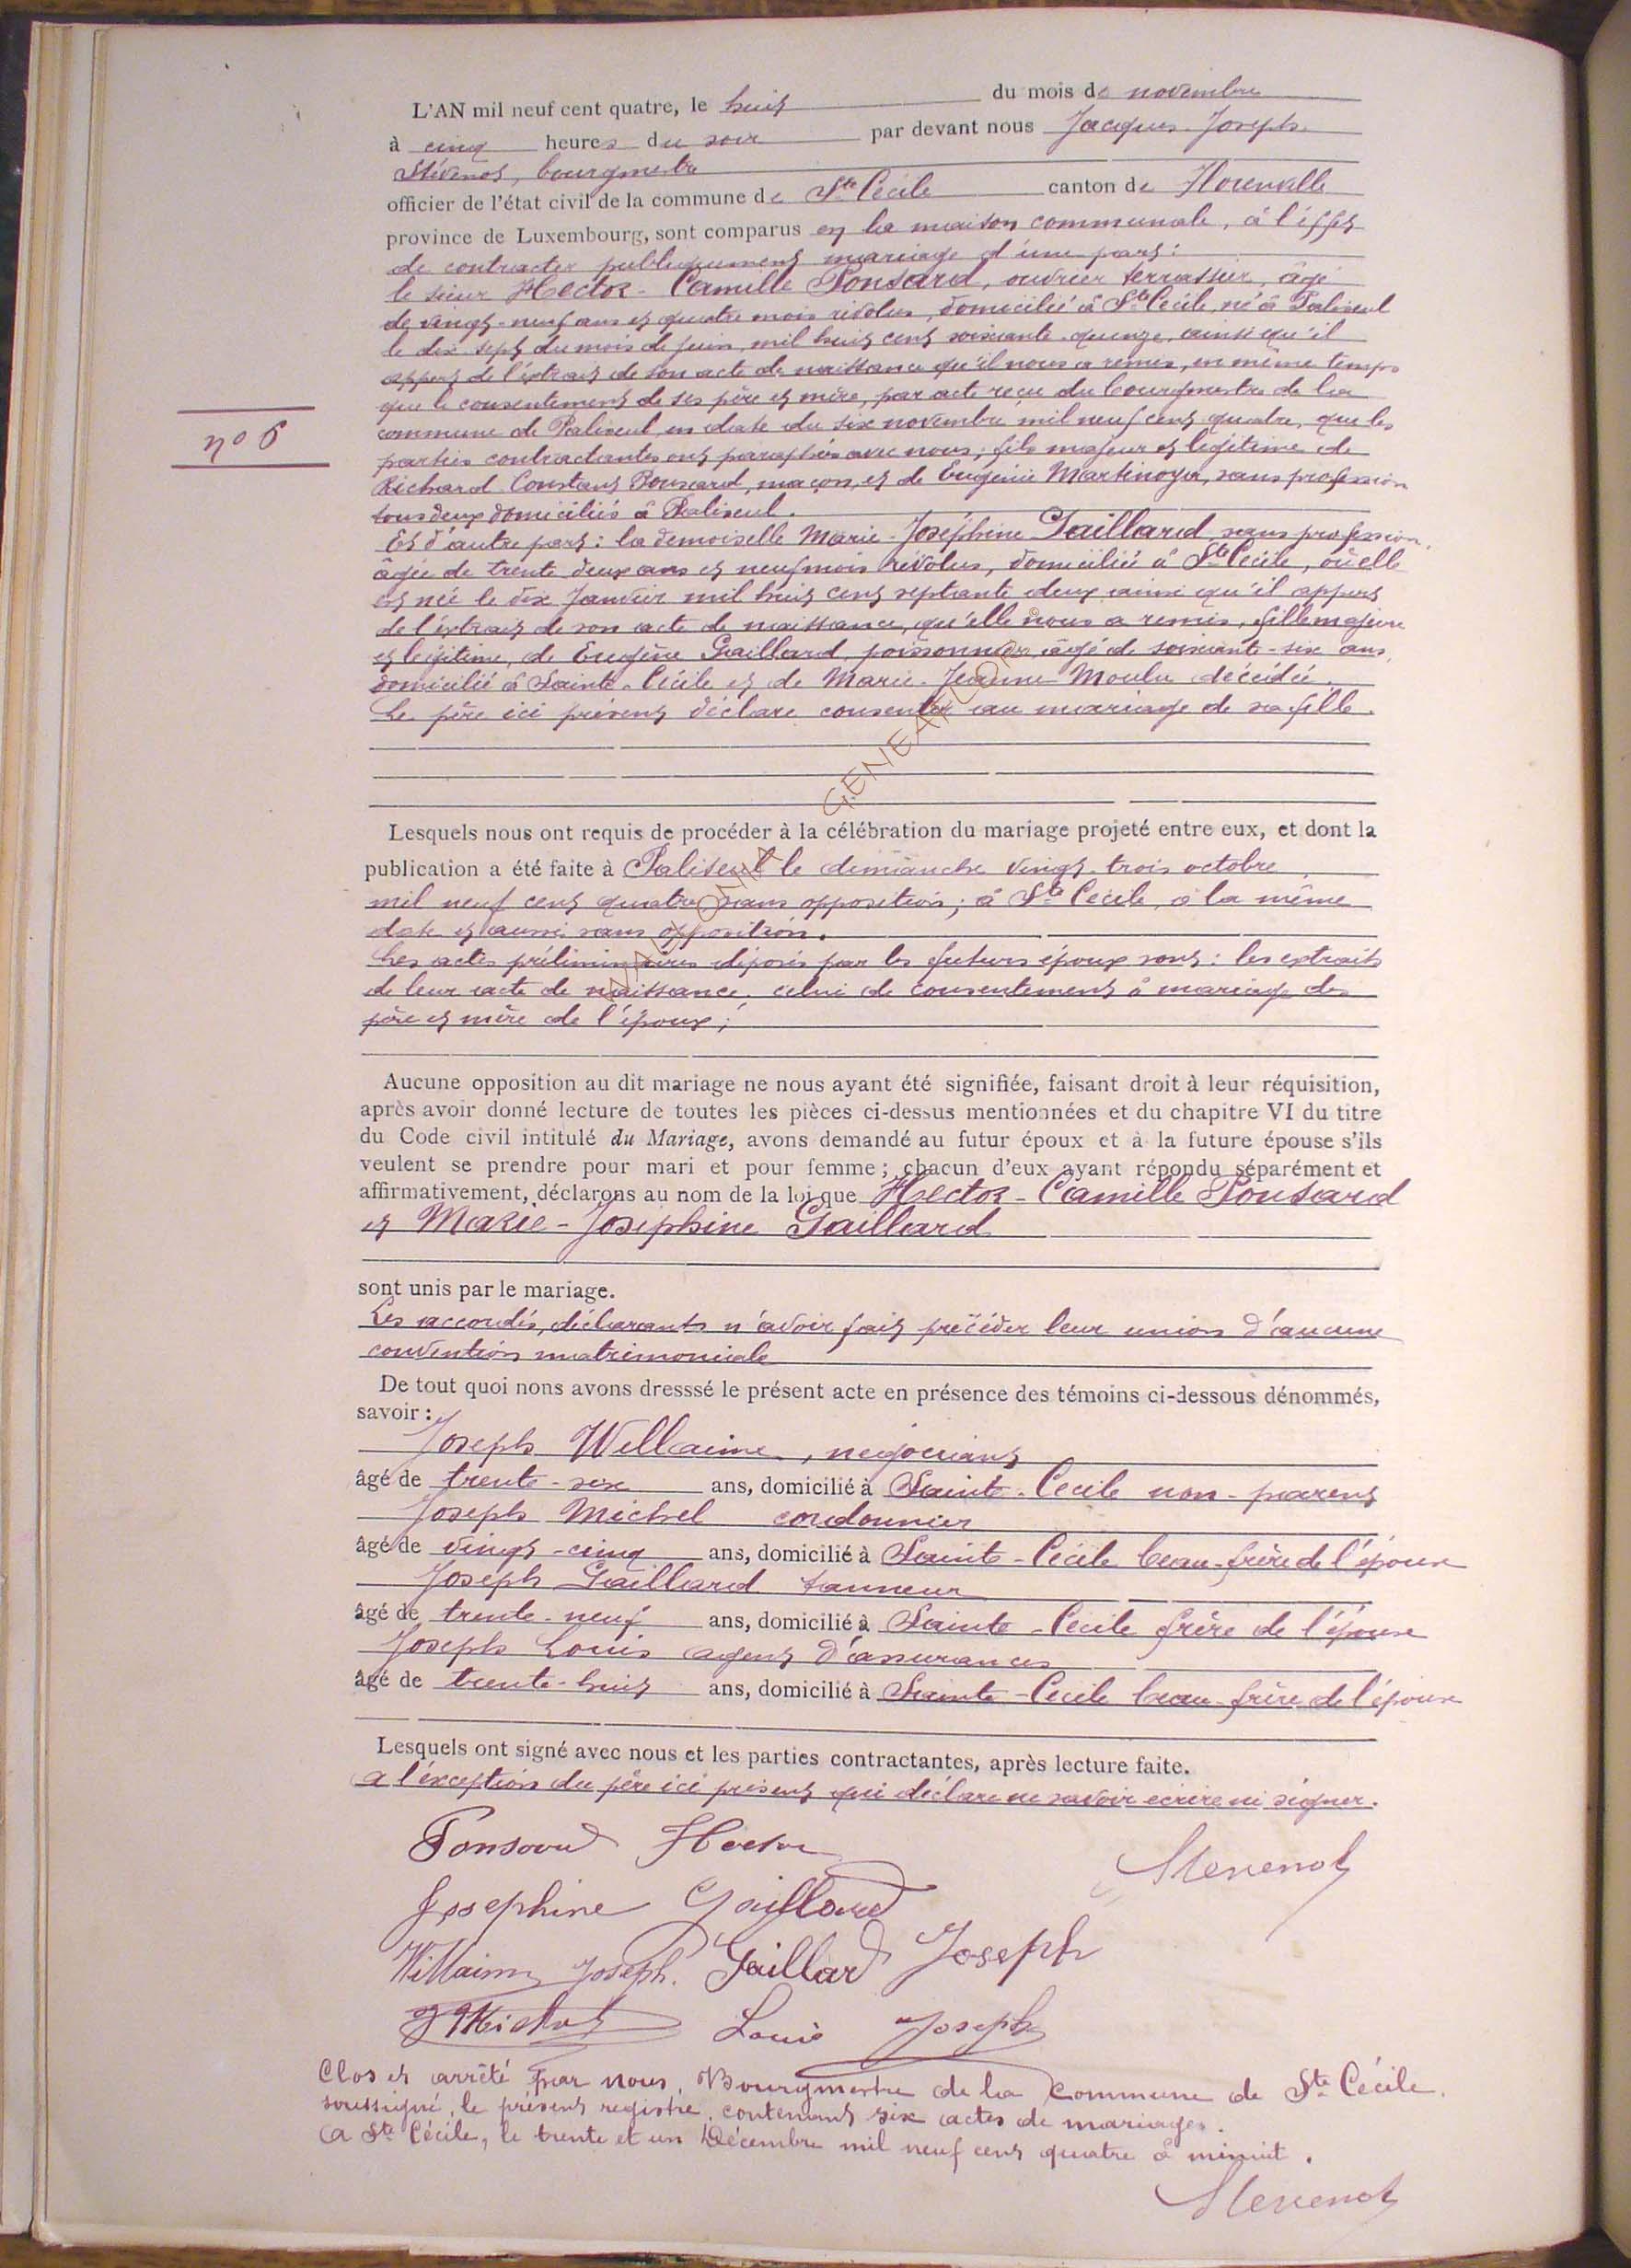 L'AN mil neuf cent quatre, le huit du mois de novembre
à cinq heures du soir par devant nous Jacques Joseph
Stévenot, bourgmestre
officier de l'état civil de la commune de Ste Cécile canton de Florenville
province de Luxembourg, sont comparus en la maison communale, à l'effet
de contracter publiquement mariage d'une part :
le sieur Hector - Camille Ponsard, ouvrier terrassier, âgé
de vingt-neuf ans et quatre mois révolus, domicilié à Ste Cécile, né à Paliseul
le dix sept du mois de juin, mil huit cent soixante-quinze, ainsi qu'il
appert de l'extrait de son acte de naissance qu'il nous a remis, en même temps
que le consentement de ses père et mère, par acte reçu du bourgmestre de la
commune de Paliseul en date du six novembre mil neuf cent quatre, que les
parties contractantes ont paraphés avec nous; fils majeur et légitime de
Richard Constant Ponsard, maçon, et de Eugénie Martinoyer, sans profession
tous deux domiciliés à Paliseul.
Et d'autre part : la demoiselle Marie - Joséphine Gaillard, sans profession,
âgée de trente deux ans et neuf mois révolus, domiciliée à Ste Cécile, où elle
est née le dix Janvier mil huit cent septante deux ainsi qu'il appert
de l'extrait de son acte de naissance, qu'elle nous a remis, fille majeure
et légitime, de Eugène Gaillard, poissonnier, âgé de soixante-six ans,
domicilié à Sainte-Cécile et de Marie-Jeanne Moulu décédée.
Le père ici présent déclare consenter au mariage de sa fille.
n° 6
Lesquels nous ont requis de procéder à la célébration du mariage projeté entre eux, et dont la
publication a été faite à Paliseul le dimanche vingt-trois octobre
mil neuf cent quatre sans opposition; à Ste Cécile, à la même
date et aussi sans opposition.
Les actes préliminaires déposés par les futurs époux sont : les extraits
de leur acte de naissance, celui de consentement à mariage des
père et mère de l'époux;
Aucune opposition au dit mariage ne nous ayant été signifiée, faisant droit à leur réquisition,
après avoir donné lecture de toutes les pièces ci-dessus mentionnées et du chapitre VI du titre
du Code civil intitulé du Mariage, avons demandé au futur époux et à la future épouse s'ils
veulent se prendre pour mari et pour femme; chacun d'eux ayant répondu séparément et
affirmativement, déclarons au nom de la loi que Hector - Camille Ponsard
et Marie - Joséphine Gaillard
sont unis par le mariage.
Les accordés, déclarants n'avoir fait précéder leur union d'aucune
convention matrimoniale
De tout quoi nons avons dresssé le présent acte en présence des témoins ci-dessous dénommés,
savoir :
Joseph Willaime, négociant
âgé de trente-six ans, domicilié à Sainte-Cécile non-parent
Joseph Michel cordonnier
âgé de vingt-cinq ans, domicilié à Sainte-Cécile beau-frère de l'épouse
Joseph Gaillard tanneur
âgé de trente-neuf ans, domicilié à Sainte-Cécile frère de l'épouse
Joseph Louis agent d'assurances
âgé de trente-huit ans, domicilié à Sainte-Cécile beau-frère de l'épouse
Lesquels ont signé avec nous et les parties contractantes, après lecture faite.
a l'exception du père ici présent qui déclare ne savoir écrire ni signer.
Ponsard Hector
Stevenot
Josephine Gaillard
Willaime Joseph. Gaillard Joseph
J Michel Louis Joseph
Clos et arrêté par nous, Bourgmestre de la Commune de Ste Cécile,
soussigné, le présent registre, contenant six actes de mariages.
A Ste Cécile, le trente et un Décembre mil neuf cent quatre à minuit.
Stevenot